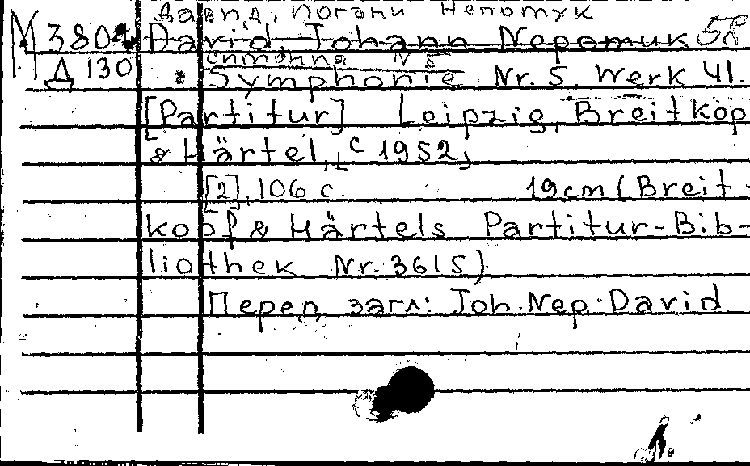 Давид, Иоганн Непомук
М 380 David, Johann Nepomuk
Д 130 Симфония № 5
Symphonie Nr. 5. Werk 41.
[Partitur] Leipzig, Breitkop
& Härtel, [c 1952,
[2], 106 с 19cm (Breit-
kopf & Härtels Partitur-Bib-
liothek Nr. 3615)
Перед загл: Joh. Nep. David